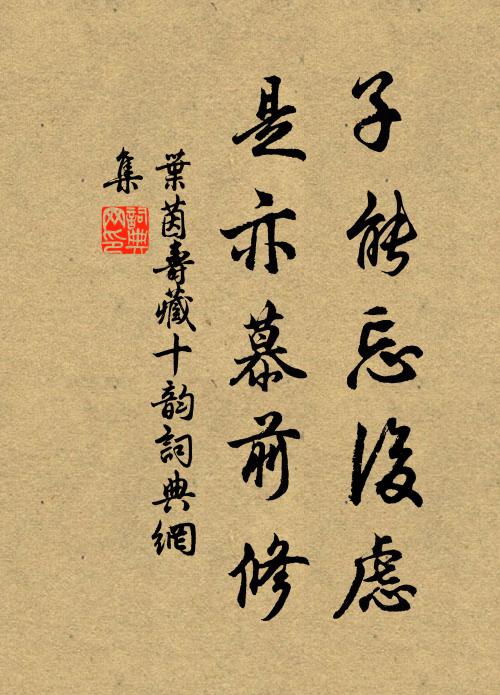 子能忘後慮
是亦慕前修
葉茵壽藏十韵詞典網
集
詞典網印